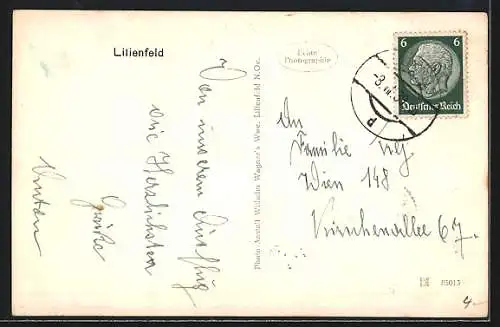 Lilienfeld
Echte
Photographie
6 6
Deutsches Reich
-8.VII.3
P
Von unserem Ausflug
die Herzlichsten
Grüße
Photo-Anstalt Wilhelm Wagner's Wwe. Lilienfeld N.Oe.
An
Familie
Wien 148
67.
85015
4.-